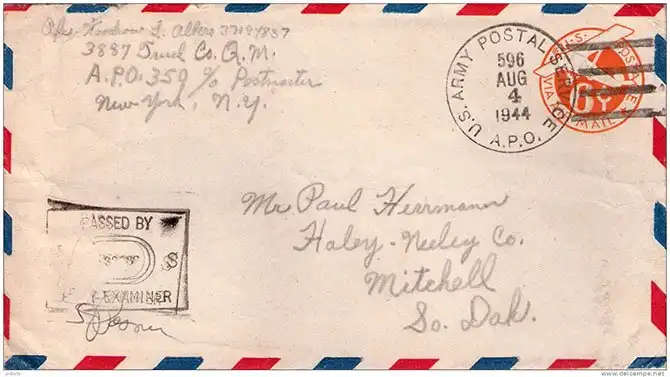 Pfc. Woodrow L. Albers 37094837
3887 Truck Co. Q.M.
A.P.O. 350 c/o Postmaster
New York, N.Y.
U.S. ARMY POSTAL SERVICE
596
AUG
4
1944
A.P.O.
U.S. POSTAGE
6¢
VIA AIR MAIL
Mr. Paul Herrmann
Haley-Neeley Co.
Mitchell
So. Dak.
PASSED BY
S
EXAMINER